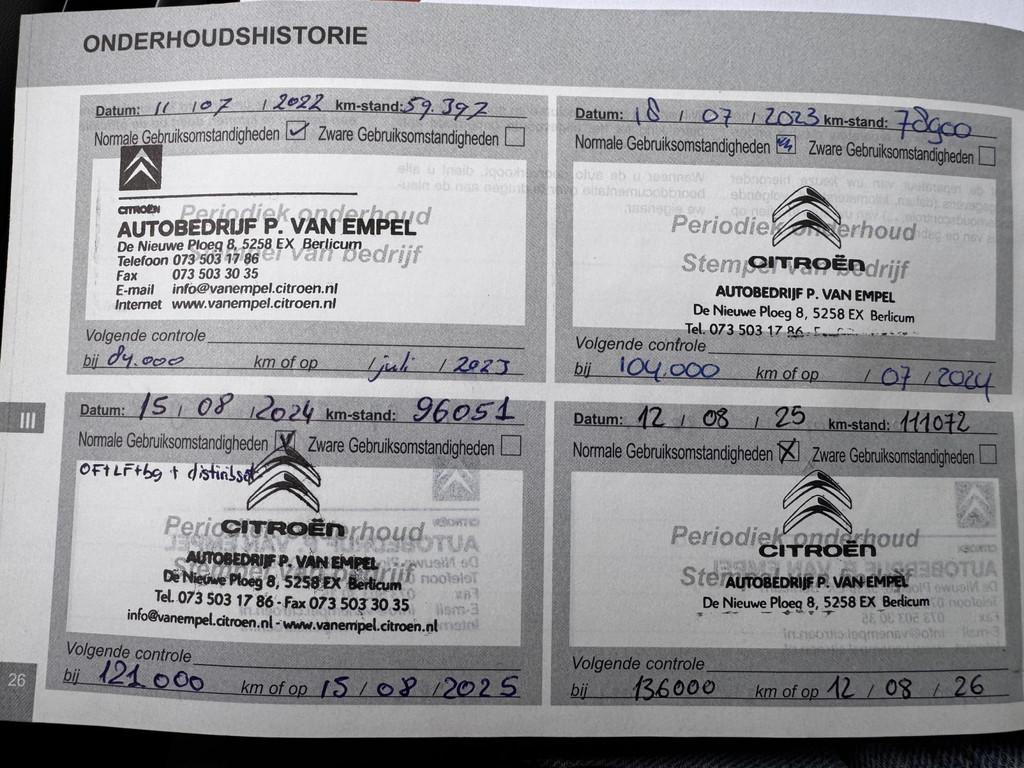 ONDERHOUDSHISTORIE
Datum: 11 / 07 / 2022 km-stand: 59.397
Normale Gebruiksomstandigheden Zware Gebruiksomstandigheden
CITROËN
Periodiek onderhoud
AUTOBEDRIJF P. VAN EMPEL
De Nieuwe Ploeg 8, 5258 EX Berlicum
Stempel van bedrijf
Telefoon 073 503 17 86
Fax 073 503 30 35
E-mail info@vanempel.citroen.nl
Internet www.vanempel.citroen.nl
Volgende controle
bij 84.000 km of op / juli / 2023
Datum: 18 / 07 / 2023 km-stand: 78900
Normale Gebruiksomstandigheden Zware Gebruiksomstandigheden
Periodiek onderhoud
CITROËN
Stempel van bedrijf
AUTOBEDRIJF P. VAN EMPEL
De Nieuwe Ploeg 8, 5258 EX Berlicum
Tel. 073 503 17 86
Volgende controle
bij 104.000 km of op / 07 / 2024
III
Datum: 15 / 08 / 2024 km-stand: 96051
Normale Gebruiksomstandigheden Zware Gebruiksomstandigheden
OF+LF+bg + distribset
Periodiek onderhoud
CITROËN
AUTOBEDRIJF P. VAN EMPEL
Stempel van bedrijf
De Nieuwe Ploeg 8, 5258 EX Berlicum
Tel. 073 503 17 86 - Fax 073 503 30 35
info@vanempel.citroen.nl - www.vanempel.citroen.nl
Volgende controle
bij 121.000 km of op 15 / 08 / 2025
Datum: 12 / 08 / 25 km-stand: 111072
Normale Gebruiksomstandigheden Zware Gebruiksomstandigheden
Periodiek onderhoud
CITROËN
Stempel van bedrijf
AUTOBEDRIJF P. VAN EMPEL
De Nieuwe Ploeg 8, 5258 EX Berlicum
Volgende controle
bij 136000 km of op 12 / 08 / 26
26